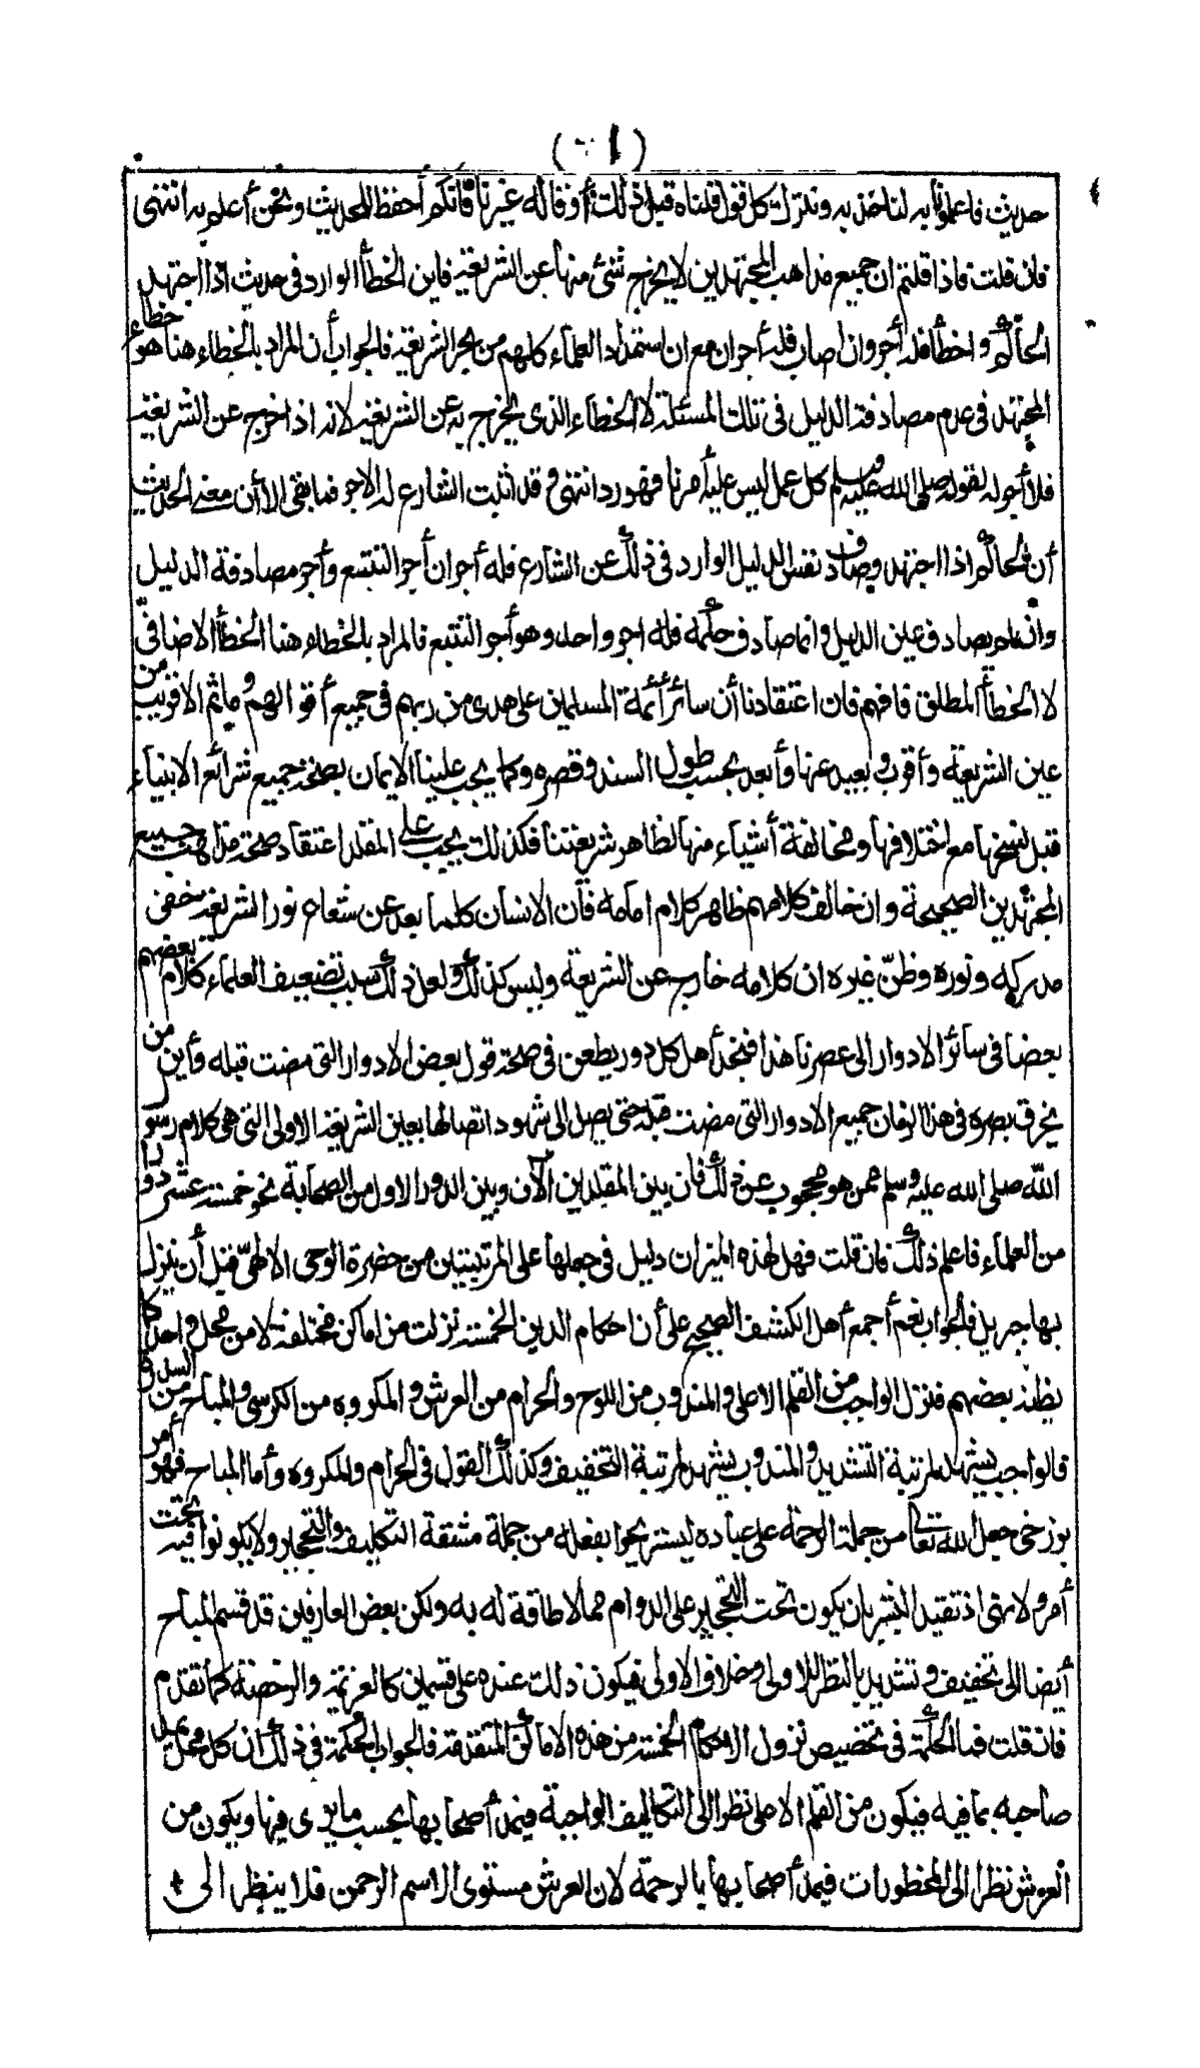 (٦١)
حديث فاعلمونا به لنأخذ به ونترك كل قول قلناه قبل ذلك أو قاله غيرنا فانكم أحفظ للحديث ونحن أعلم به انتهى
فان قلت فاذا قلتم ان جميع مذاهب المجتهدين لا يخرج شئ منها عن الشريعة فاين الخطأ الوارد فى حديث اذا اجتهد
الحاكم واخطأ فله أجر وان أصاب فله أجران مع ان استمداد العلماء كلهم من بحر الشريعة فالجواب أن المراد بالخطاء هنا هو خطاء
المجتهد فى عدم مصادفة الدليل فى تلك المسئلة لا الخطاء الذى يخرج به عن الشريعة لانه اذا خرج عن الشريعة
فلا أجر له لقوله صلى الله عليه وسلم كل عمل ليس عليه أمرنا فهو رد انتهى وقد اثبت الشارع له الاجر فما بقى الا أن معنى الحديث
أن الحاكم اذا اجتهد وصادف نفس الدليل الوارد فى ذلك عن الشارع فله أجران أجر التتبع وأجر مصادفة الدليل
وان لم يصادف عين الدليل وانما صادف حكمه فله اجر واحد وهو أجر التتبع فالمراد بالخطاء هنا الخطأ الاضافى
لا الخطأ المطلق فافهم فان اعتقادنا أن سائر أئمة المسلمين على هدى من ربهم فى جميع أقوالهم وما ثم الا قريب من
عين الشريعة وأقرب وبعيد عنها وأبعد بحسب طول السند وقصره وكما يجب علينا الايمان بصحة جميع شرائع الانبياء
قبل نسخها مع اختلافها ومخالفة أشياء منها لظاهر شريعتنا فكذلك يجب على المقلد اعتقاد صحة مذاهب جميع
المجتهدين الصحيحة وان خالف كلامهم ظاهر كلام امامه فان الانسان كلما بعد عن شعاع نور الشريعة خفى
مدركه ونوره وظنّ غيره ان كلامه خارج عن الشريعة وليس كذلك ولعل ذلك سبب تضعيف العلماء كلام بعضهم
بعضا فى سائر الادوار الى عصرنا هذا فتجد أهل كل دور يطعن فى صحة قول بعض الادوار التى مضت قبله وأين من
يخرق بصره فى هذا الزمان جميع الادوار التى مضت قبله حتى يصل الى شهود اتصالها بعين الشريعة الاولى التى هى كلام رسول
الله صلى الله عليه وسلم ممن هو محجوب عن ذلك فان بين المقلدين الآن وبين الدور الاول من الصحابة نحو خمسة عشر دورا
من العلماء فاعلم ذلك فان قلت فهل لهذه الميزان دليل فى جعلها على المرتبتين من حضرة الوحى الالهىّ قبل أن ينزل
بها جبريل فالجواب نعم أجمع أهل الكشف الصحيح على أن احكام الدين الخمسة نزلت من اماكن مختلفة لا من محل واحد كما
يظنه بعضهم فنزل الواجب من القلم الاعلى والمندوب من اللوح والحرام من العرش والمكروه من الكرسى والمباح من السدرة
فالواجب يشهد لمرتبة التشديد والمندوب يشهد لمرتبة التخفيف وكذلك القول فى الحرام والمكروه وأما المباح فهو أمر
برزخى جعله الله تعالى من جملة الرحمة على عباده ليستريحوا بفعله من جملة مشقة التكليف والتحجير ولا يكونوا فيه تحت
أمر ولا نهى اذ تقيد البشر بان يكون تحت التحجير على الدوام مما لا طاقة له به ولكن بعض العارفين قد قسم المباح
أيضا الى تخفيف وتشديد بالنظر للاولى وخلاف الاولى فيكون ذلك عنده على قسمين كالعزيمة والرخصة كما تقدم
فان قلت فما الحكمة فى تخصيص نزول الاحكام الخمسة من هذه الاماكن المتقدمة فالجواب الحكمة فى ذلك أن كل محل يمد
صاحبه بما فيه فيكون من القلم الاعلى نظرا الى التكاليف الواجبة فيمد أصحابها بحسب ما يرى فيها ويكون من
العرش نظر الى المحظورات فيمد أصحابها بالرحمة لان العرش مستوى الاسم الرحمن فلا ينظر الى